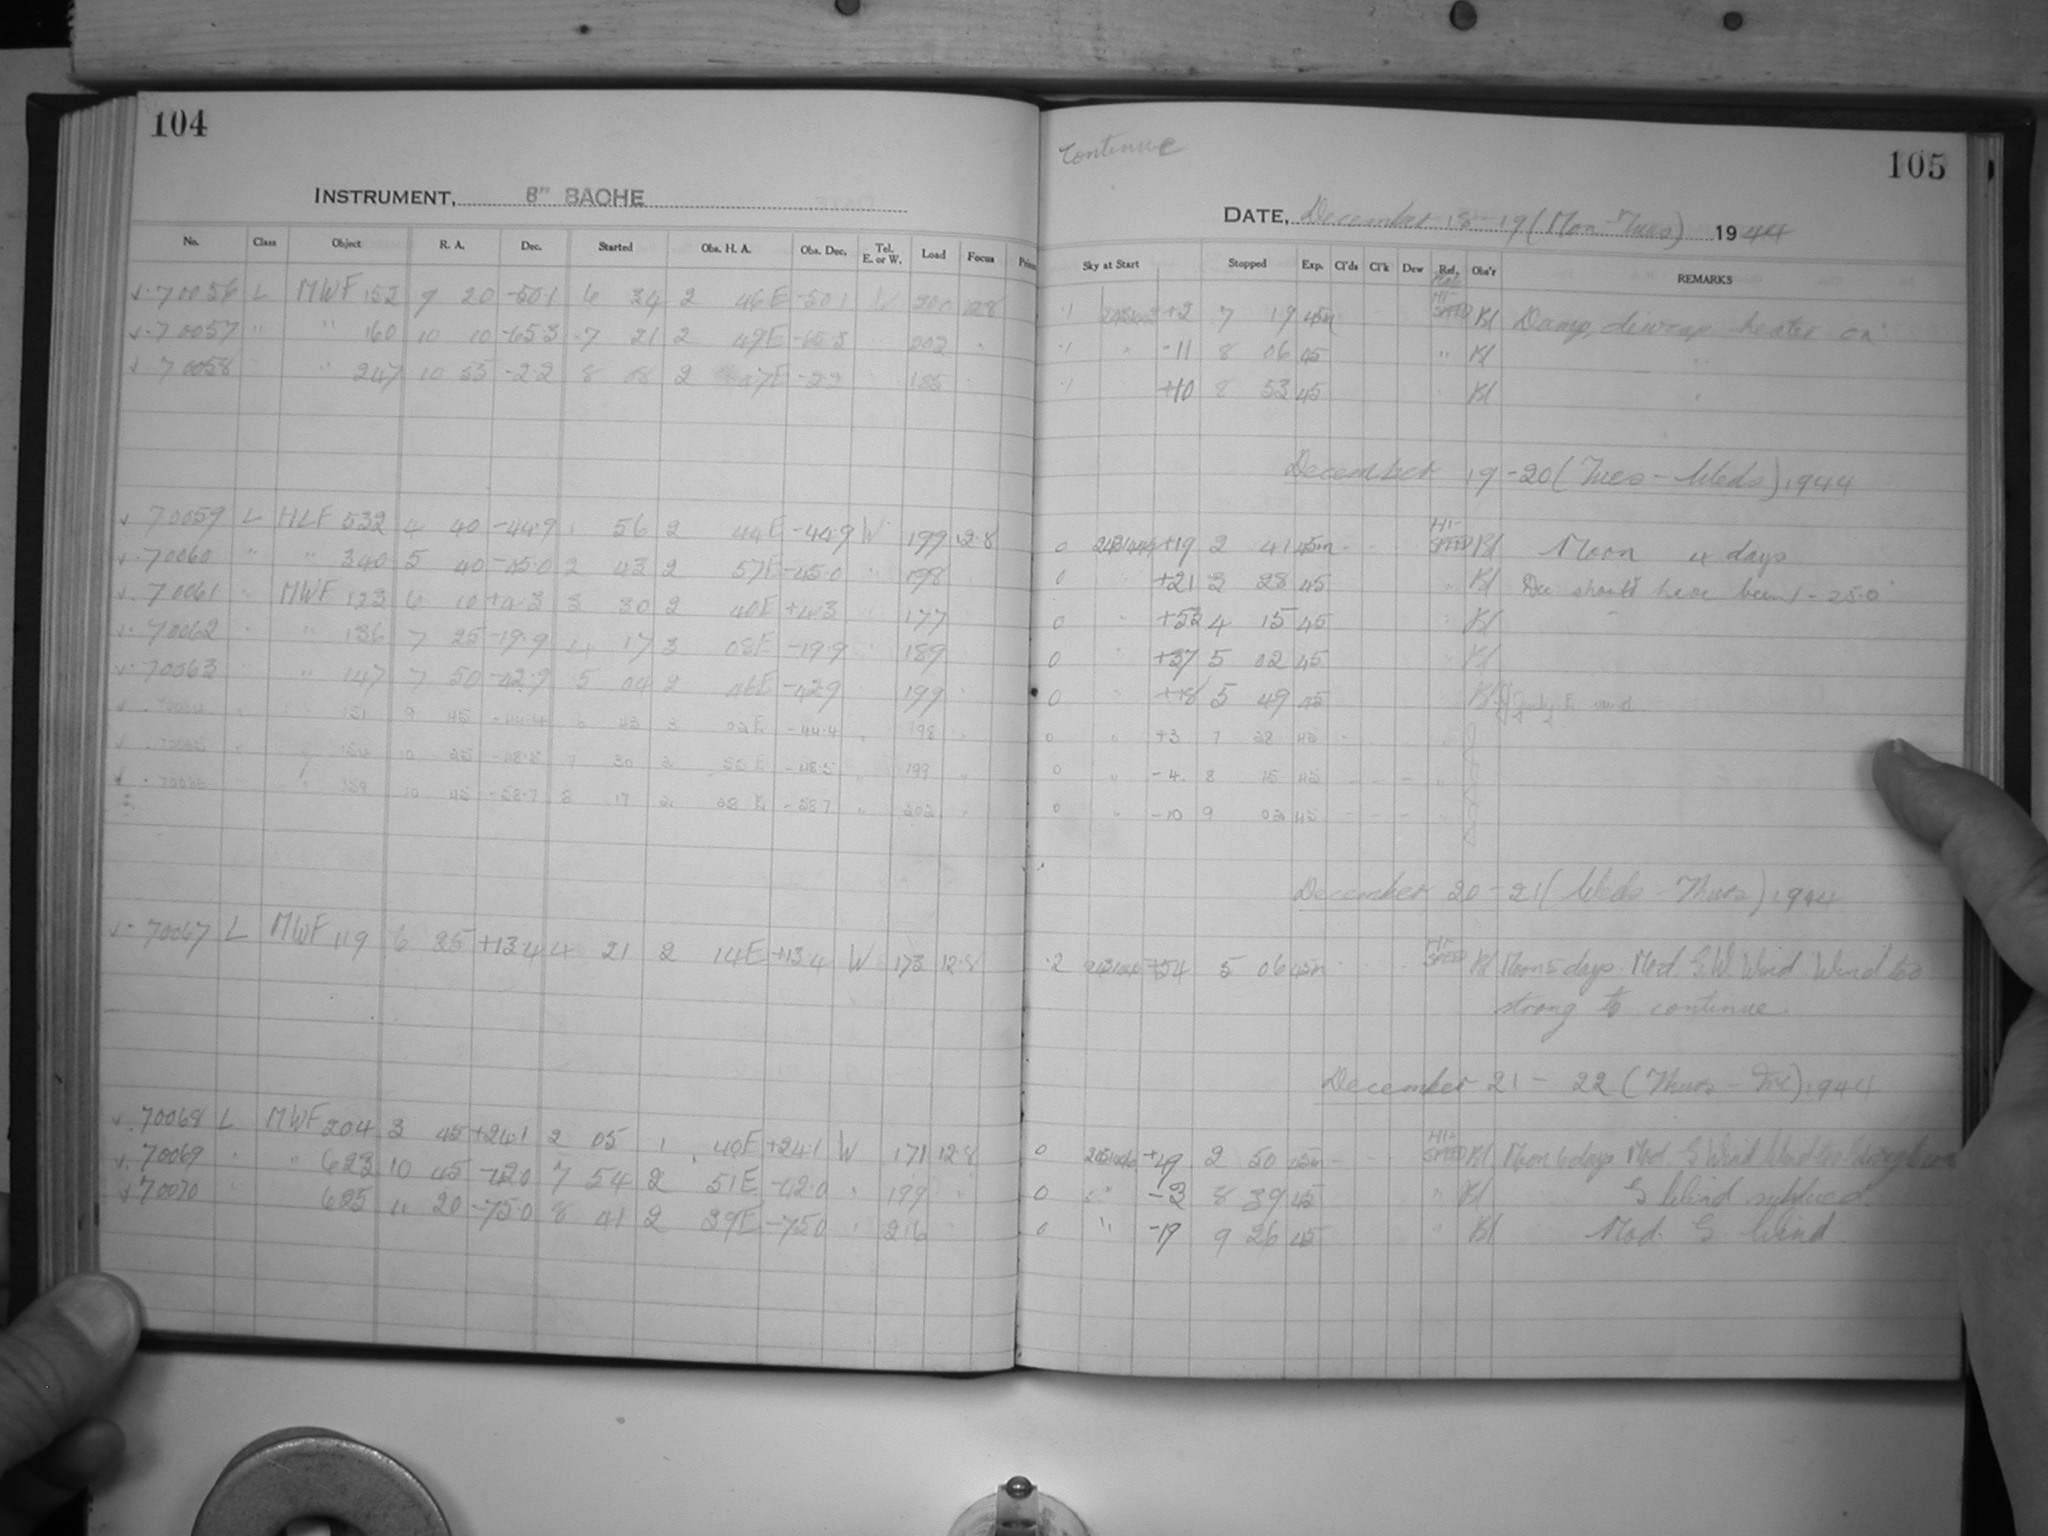 104
INSTRUMENT, 8" BACHE
No. Class Object R. A. Dec. Started Obs. H. A. Obs. Dec. Tel. E. or W. Load Focus
70056 L MWF 152 9 20 -50.1 6 34 2 46E -50.1 W 200 12.8
70057 " " 160 10 10 -65.3 7 21 2 49E -65.3 " 202 "
70058 " 247 10 55 -2.2 8 08 2 47E -2.2 185
70059 L HLF 532 4 40 -44.9 1 56 2 44E -44.9 W 199 12.8
70060 " " 340 5 40 -45.0 2 43 2 57E -45.0 " 198
70061 " MWF 123 6 10 +4.3 3 30 2 40E +4.3 177
70062 " " 136 7 25 -19.9 4 17 3 08E -19.9 189
70063 " 147 7 50 -42.9 5 04 2 46E -42.9 199
151 9 45 -44.4 6 43 3 02E -44.4 " 198
10 25 -48.5 7 30 2 55E -48.5 " 199
159 10 45 -58.7 8 17 2 28E -58.7 " 202
70067 L MWF 119 6 35 +13.4 4 21 2 14E +13.4 W 173 12.8
70068 L MWF 204 3 45 +24.1 2 05 1 40E +24.1 W 171 12.8
70069 " " 623 10 45 -42.0 7 54 2 51E -42.0 " 199
70070 " 625 11 20 -75.0 8 41 2 39E -75.0 " 216
Continue
105
DATE, December 18-19 (Mon-Tues) 1944
Sky at Start Stopped Exp. Cl'ds Cl'k Dew Ref. Obs'r REMARKS
.1 +2 7 19 45m HI-SPEED Bl Damp, dewcap heater on
.1 " -11 8 06 45 " Bl "
.1 +10 8 53 45 Bl "
December 19-20 (Tues-Weds) 1944
0 +19 2 41 45m HI-SPEED Bl Moon 4 days
0 " +21 3 28 45 " Bl Dec should have been -25.0
0 " +53 4 15 45 Bl
0 " +37 5 02 45 Bl
0 " +18 5 49 45 Bl
0 " +3 7 28 45 "
0 " -4 8 15 45 "
0 " -10 9 02 45 "
December 20-21 (Weds-Thurs) 1944
.2 +54 5 06 45m HI-SPEED Bl Moon 5 days Mod. S.W. Wind Wind too
strong to continue.
December 21-22 (Thurs-Fri) 1944
0 +49 2 50 45m HI-SPEED Bl Moon 6 days Mod. S Wind Wind too
0 " -3 8 39 45 " Bl S Wind subdued
0 " -19 9 26 45 " Bl Mod. S Wind